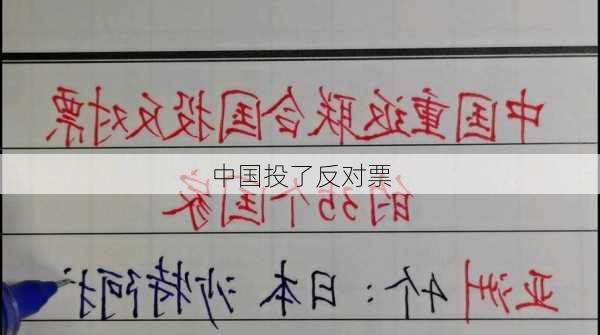 中国重返联合国投反对票
中国投了反对票
的35个国家
亚洲4个：日本 沙特阿